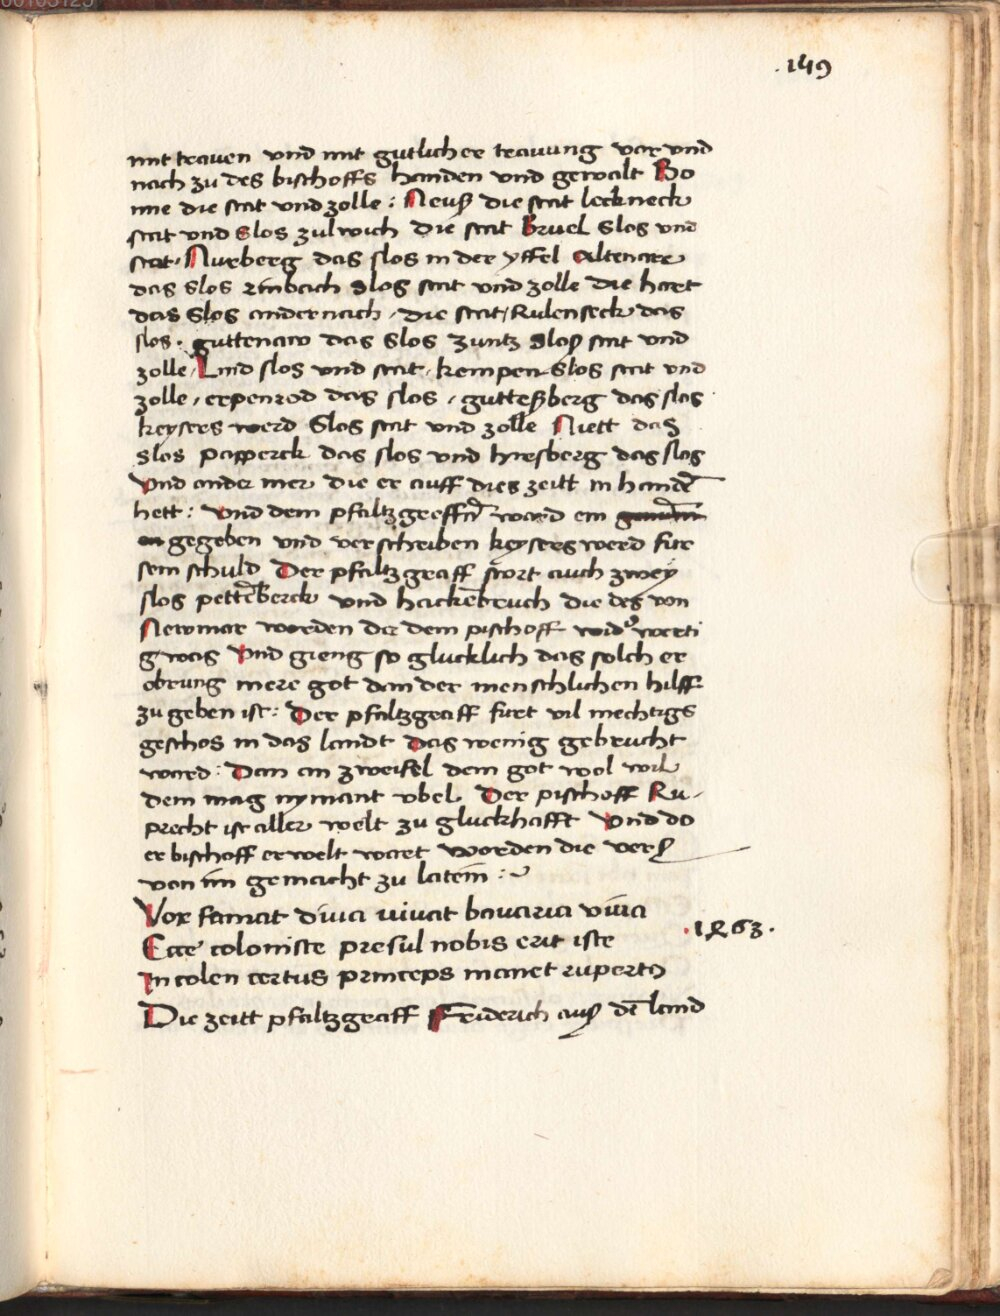 .149
mit trauen vnd mit gutlicher trauung vor vnd
nach zu des bischoffs handen vnd gewalt Bo
nne die stat vnd zolle : Neuß die stat lechneck
stat vnd Slos zulwich die stat Bruel Slos vnd
stat. Nurberg das slos in der yffel Altenare
das Slos Rinbach Slos stat vnd zolle die hart
das Slos andernach, die stat, Rulenseck das
slos. guttenaw das Slos zuntz Sloß stat vnd
zolle, Lind slos vnd stat, kempen Slos stat vnd
zolle, erpenrod das slos, gutteßberg das slos
keysers werd Slos stat vnd zolle Niett das
slos papperck das slos vnd hyrsberg das slos
Vnd ander mer die er auff dies zeitt in handē
hett : Vnd dem pfaltzgreffn̄ ward ein
gegeben vnd verschreiben keyserswerd fur
sein schuld Der pfaltzgraff stort auch zwey
slos petterberck vnd hackēbruch die des von
Newmar worden die dem pischoff widerwerti
g was Vnd gieng so glucklich das solch er
obrung mere got dan der menschlichen hilff
zu geben ist : Der pfaltzgraff furt vil mechtigs
geschos in das landt Das wenig gebrucht
ward : Dan an zweifel dem got wol wil
dem mag nymant vbel. Der pischoff Ru,
precht ist aller welt zu gluckhafft Vnd do
er bischoff erwelt wart worden die verß
von im gemacht zu latein :~
Vox famat diuia uiuat bauaria viuia
Ecce coloniste presul nobis erit iste
.1463.
In colen certus princeps manet ruperto
Die zeitt pfaltzgraff Friderich auß dē land